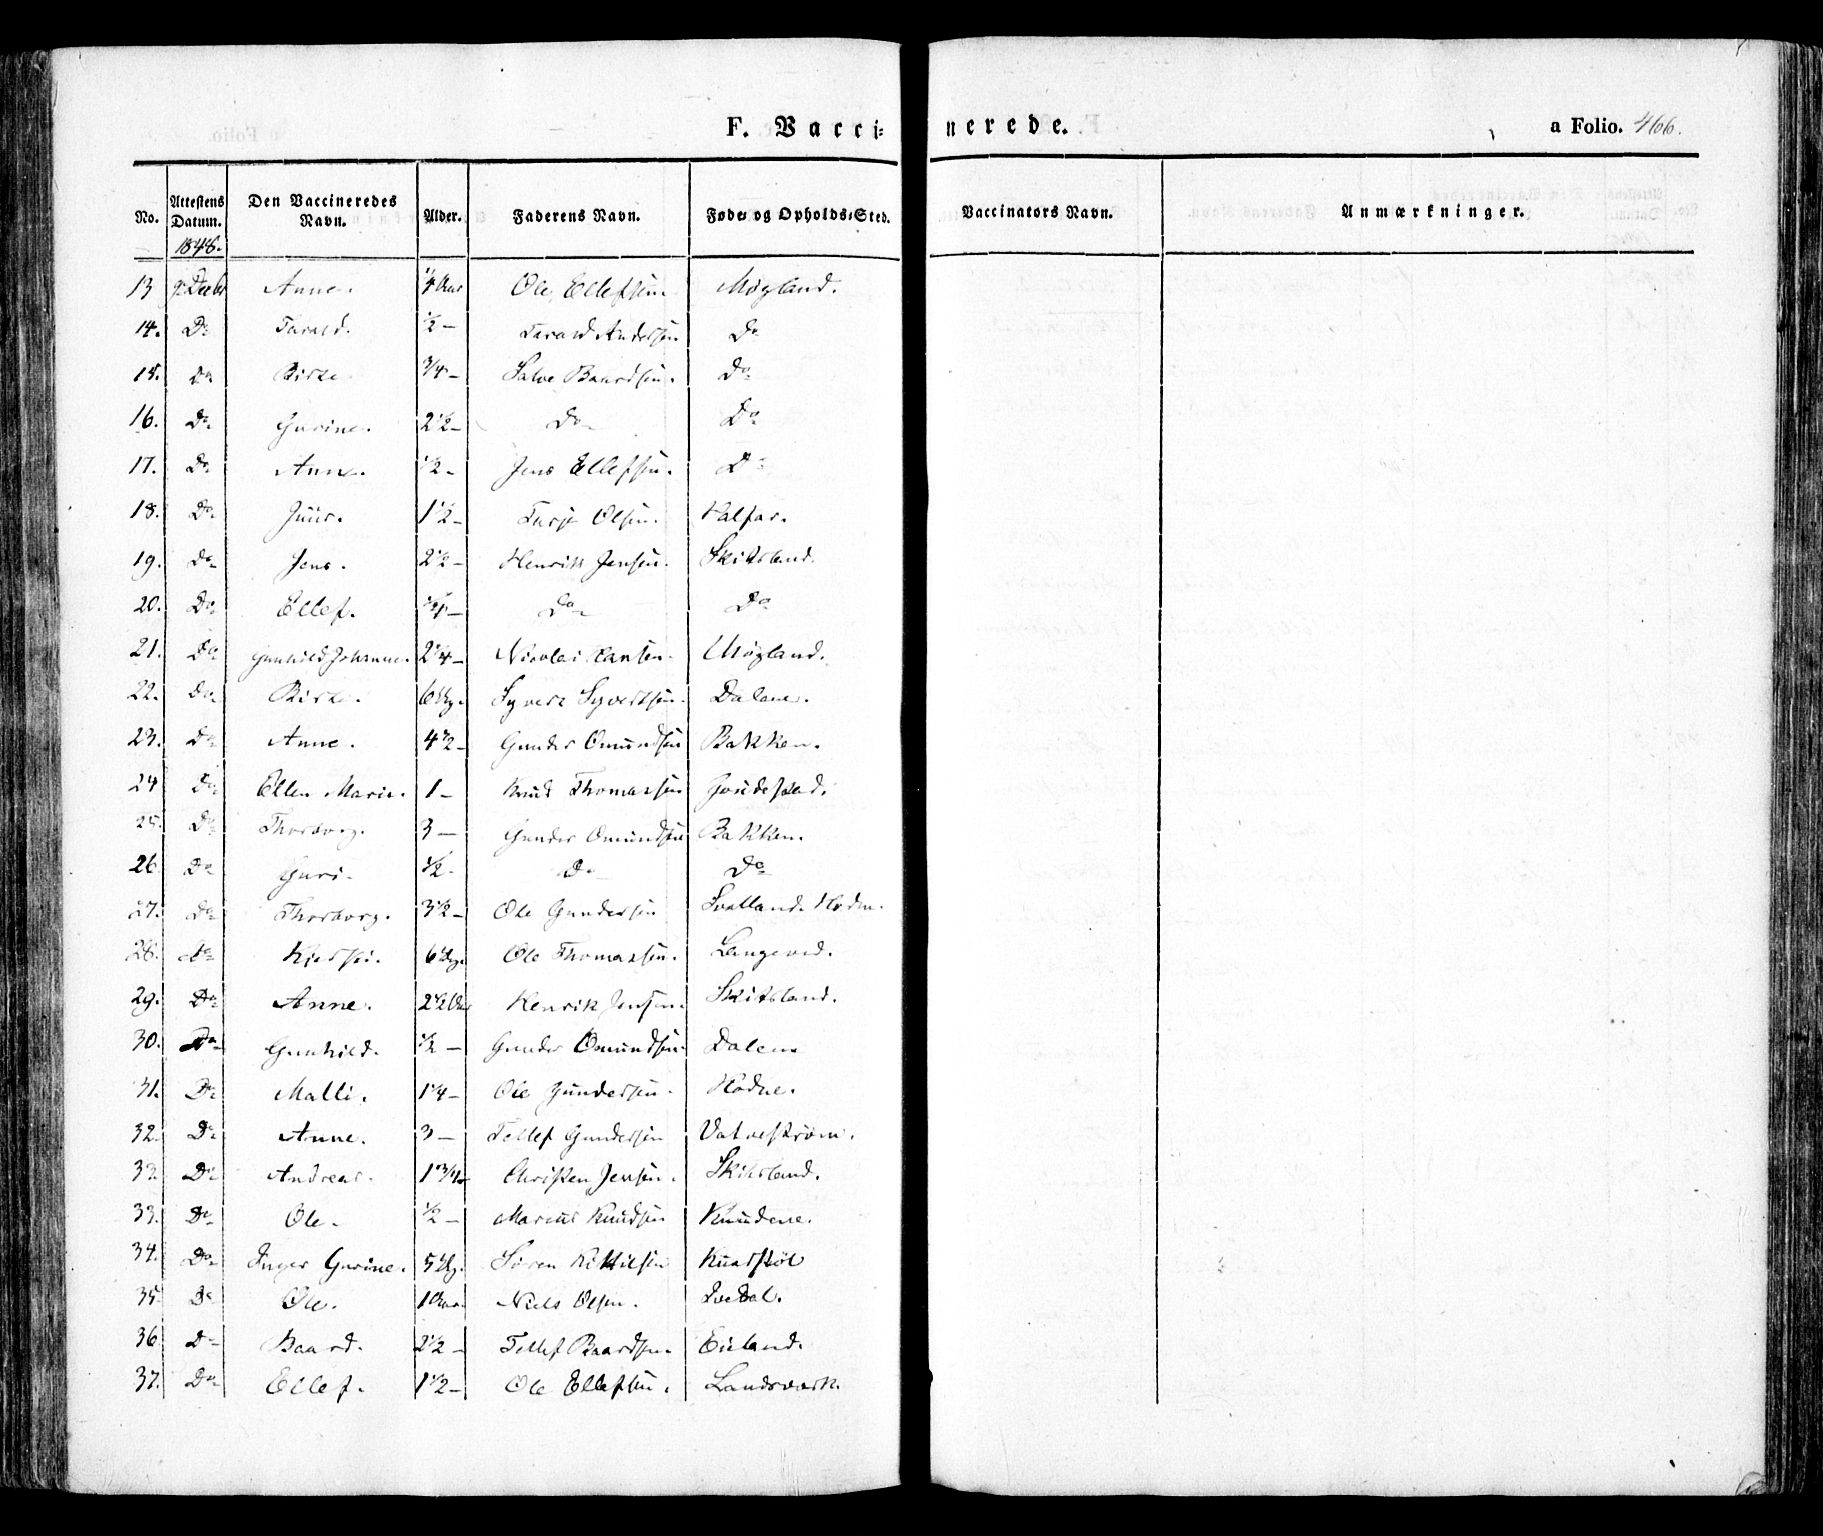 F. Vaccinerede.
a Folio. 466.
No. | Attestens Datum. | Den Vaccineredes Navn. | Alder. | Faderens Navn. | Føde- og Opholds-Sted. | Vaccinators Navn. | Anmærkninger.
1848.
13 | 9 Decbr | Anne. | 1/4 Aar | Ole Ellefsen | Møgland.
14. | Do | Tarald. | 1/2 — | Tarald Andersen | Do
15. | Do | Birte. | 3/4 — | Salve Baardsen. | Do
16. | Do | Gurine. | 2 1/2 — | Do | Do
17. | Do | Anne. | 1/2 — | Jens Ellefsen. | Do
18. | Do | Juur. | 1 1/2 — | Tarje Olsen. | Valfar.
19. | Do | Jens. | 2 1/2 — | Henrik Jensen. | Skitsland.
20. | Do | Ellef. | Do | Do
21. | Do | Gunhild Johanne. | 2 1/4 — | Nicolai Hansen. | Møgland.
22. | Do | Birte. | 6 Ug. | Syvert Syvertsen. | Dalene.
23. | Do | Anne. | 4 1/2 — | Gunder Omundsen | Bakken.
24 | Do | Ellen Marie. | 1 — | Knud Thomassen
25. | Do | Thorborg. | 3 — | Gunder Omundsen | Bakken.
26 | Do | Guri. | 1/2 — | Do | Do
27. | Do | Thorborg. | 3 1/2 — | Ole Gundersen | Hodne.
28. | Do | Kjersti. | 6 Ug. | Ole Thomassen. | Langeved.
29. | Do | Anne. | 2 1/2 Aar | Henrik Jensen. | Skitsland.
30. | Do | Gunhild. | 1/2 — | Gunder Omundsen. | Dalene
31. | Do | Malli. | 1 1/4 — | Ole Gundersen. | Hodne.
32. | Do | Anne. | 3 — | Tellef Gundersen | Vatnestrøm.
33. | Do | Andreas. | 1 3/4 — | Christen Jensen. | Skitsland.
33. | Do | Ole. | 1/2 — | Marcus Knudsen | Knudene.
34. | Do | Inger Gurine. | 5 Ug. | Søren Kittilsen
35. | Do | Ole. | 1 Aar. | Niels Olsen.
36. | Do | Baard. | 2 1/2 — | Tellef Baardsen. | Eieland.
37. | Do | Ellef. | 1 1/2 — | Ole Ellefsen. | Landsværk.